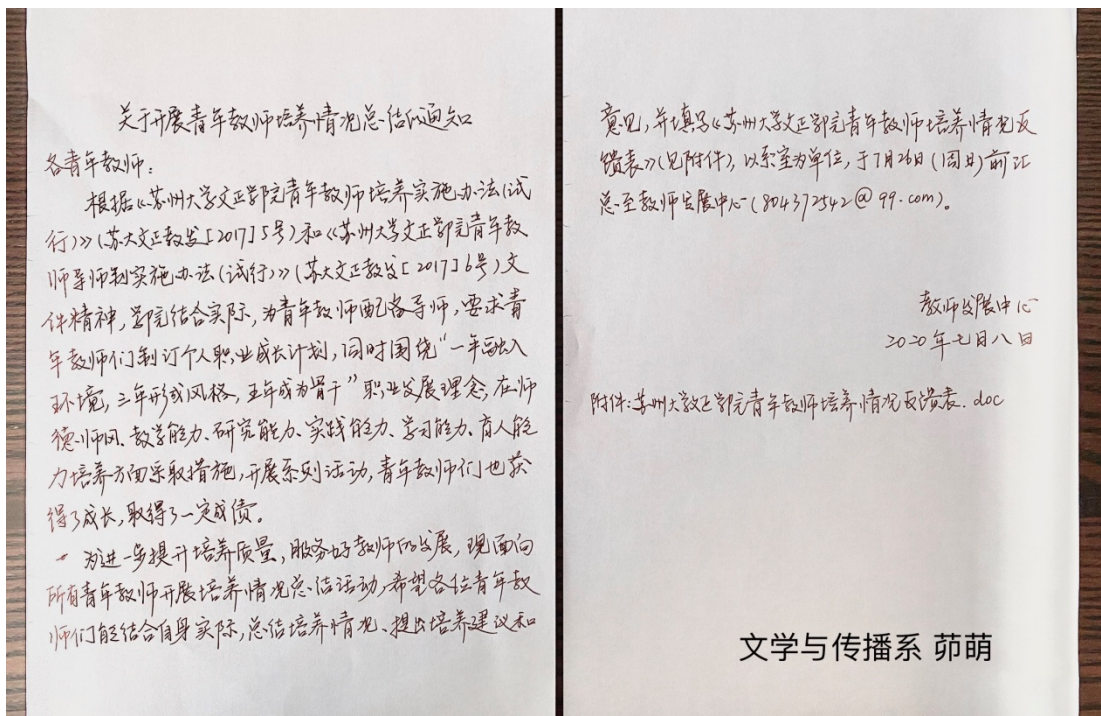 关于开展青年教师培养情况总结的通知
各青年教师：
根据《苏州大学文正学院青年教师培养实施办法(试
行)》(苏大文正教发[2017]5号)和《苏州大学文正学院青年教
师导师制实施办法(试行)》(苏大文正教发[2017]6号)文
件精神，学院结合实际，为青年教师配备导师，要求青
年教师们制订个人职业成长计划，同时围绕“一年融入
环境，三年形成风格，五年成为骨干”职业发展理念，在师
德师风、教学能力、研究能力、实践能力、学习能力、育人能
力培养方面采取措施，开展系列活动，青年教师们也获
得了成长，取得了一定成绩。
为进一步提升培养质量，服务好教师的发展，现面向
所有青年教师开展培养情况总结活动，希望各位青年教
师们能结合自身实际，总结培养情况、提出培养建议和
意见，并填写《苏州大学文正学院青年教师培养情况反
馈表》(见附件)，以系室为单位，于7月26日(周日)前汇
总至教师发展中心(804372542@99.com)。
教师发展中心
2020年七月八日
附件：苏州大学文正学院青年教师培养情况反馈表.doc
文学与传播系 茆萌